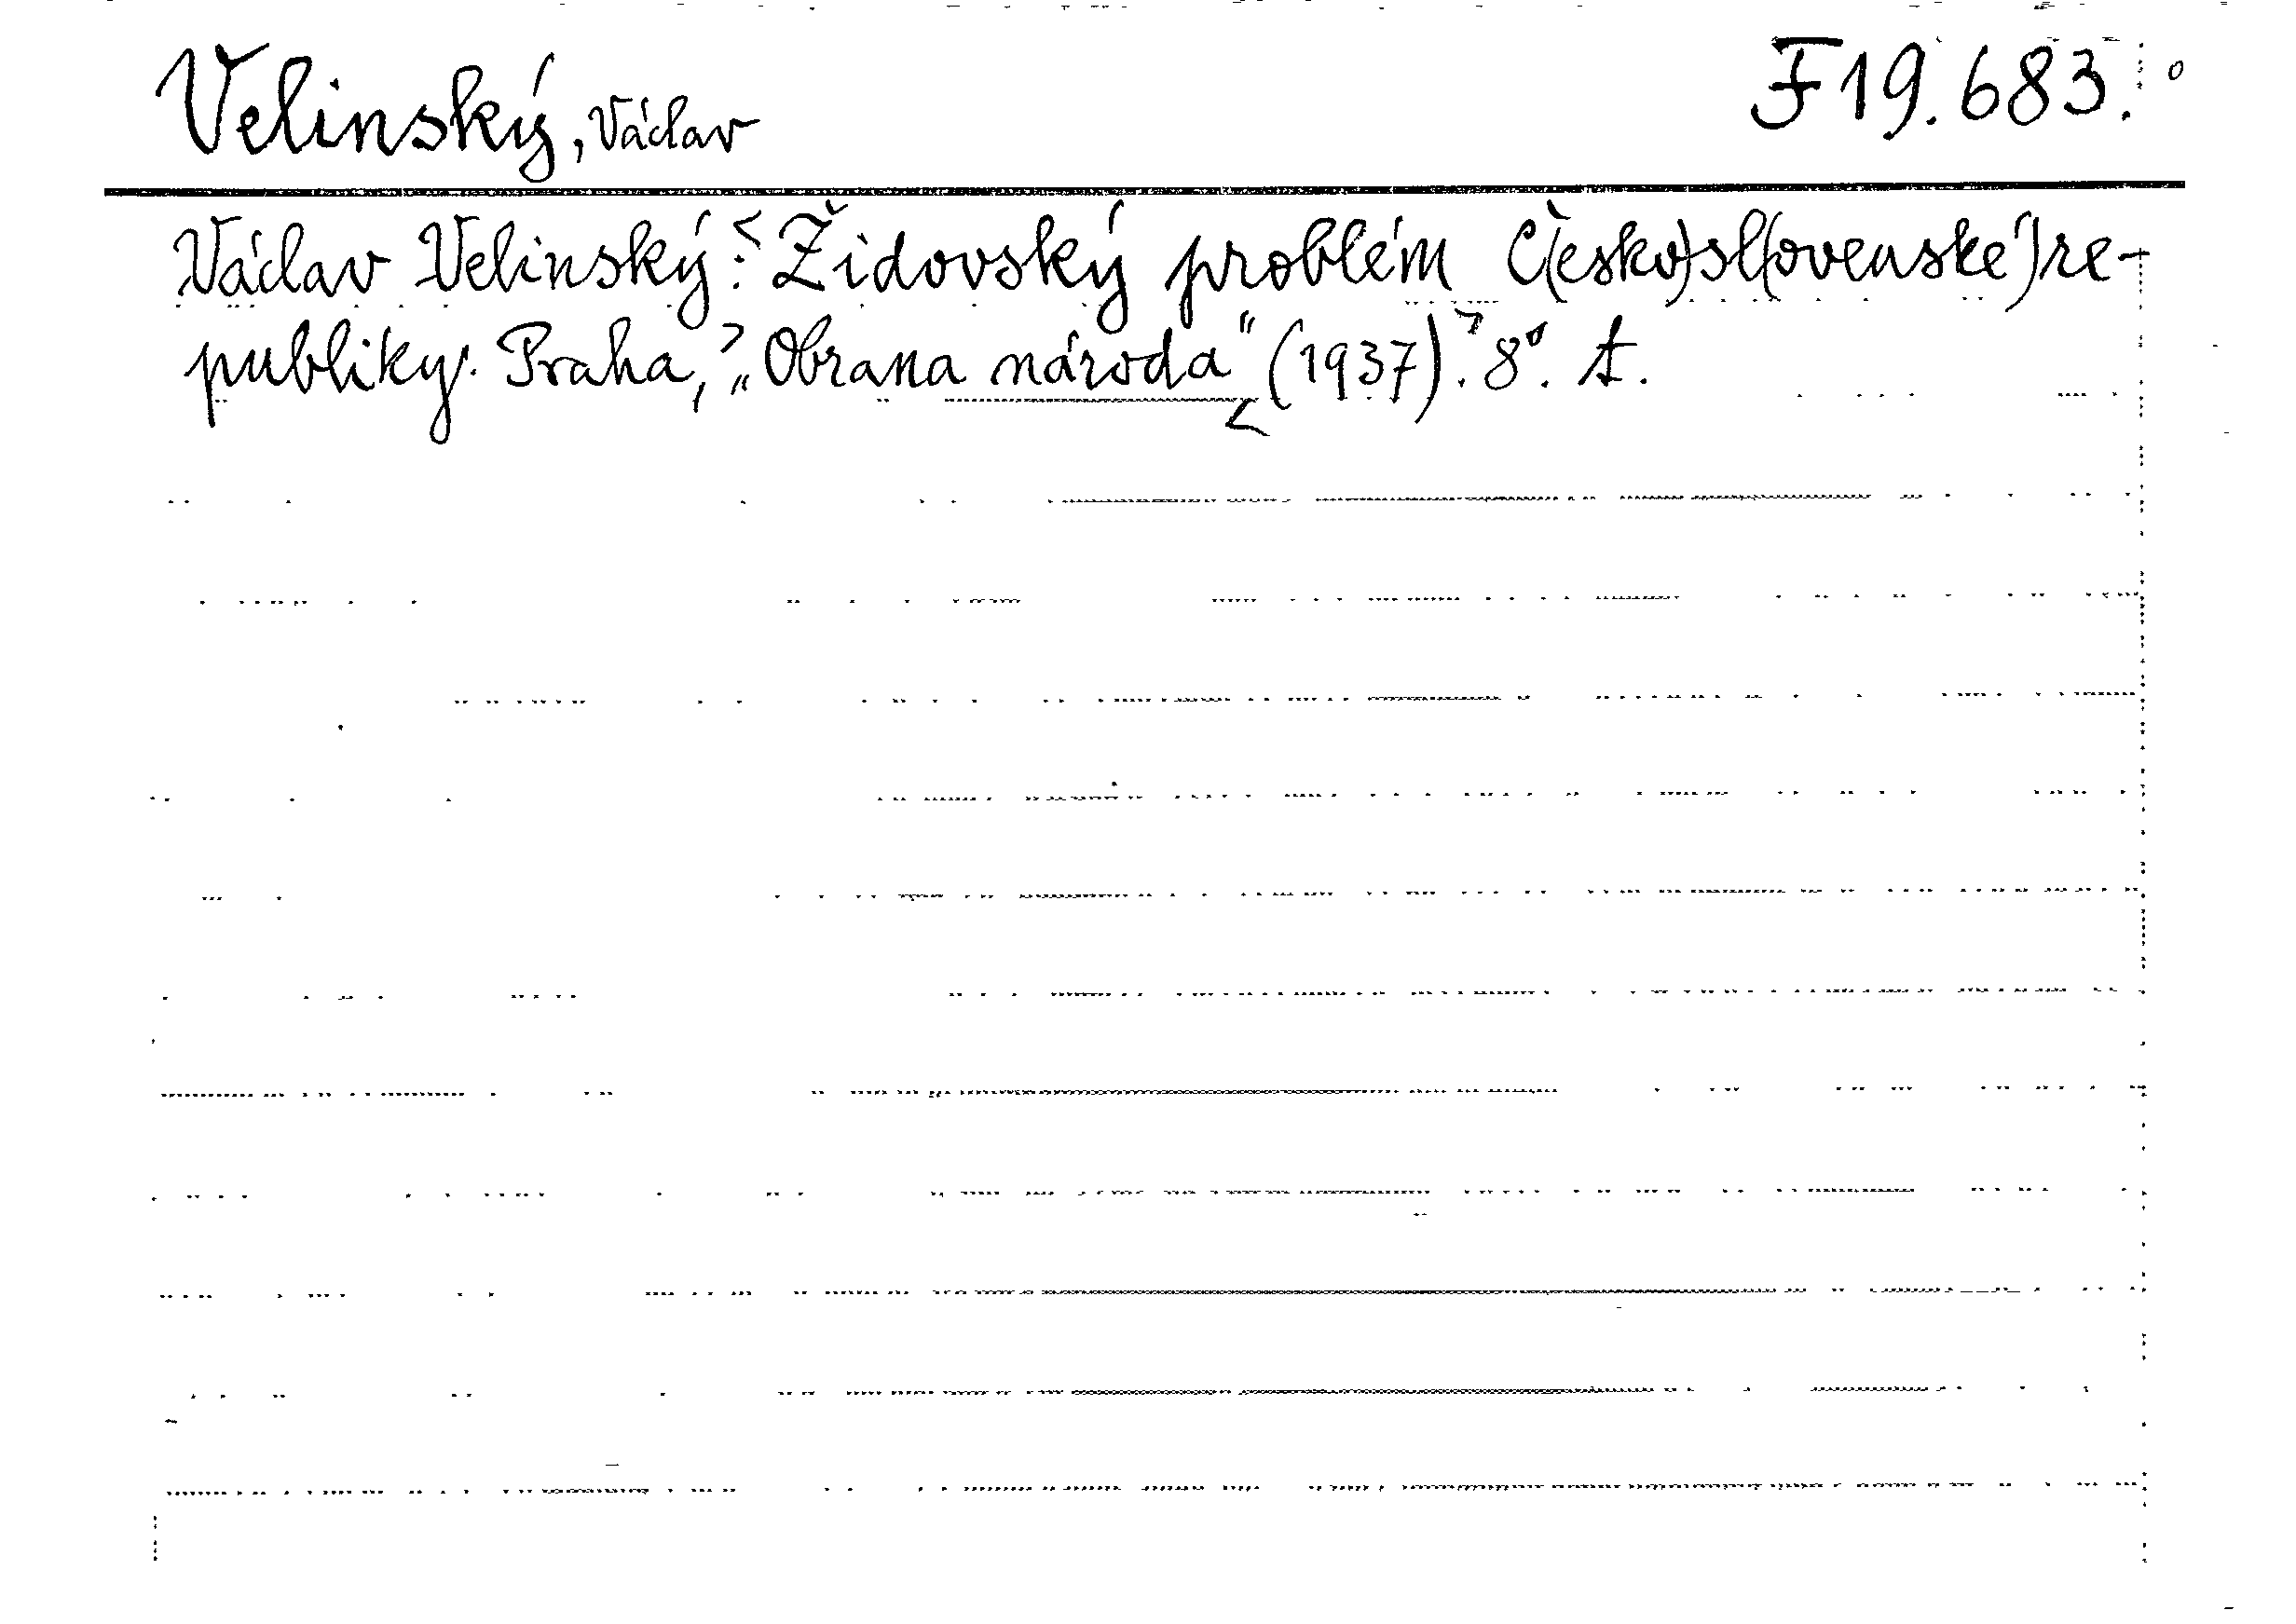 Velinský, Václav
F 19.683.
Václav Velinský: < Židovský problém Č(esko)sl(ovenské) re-
publiky. Praha, > „Obrana národa“ < (1937). > 8°.